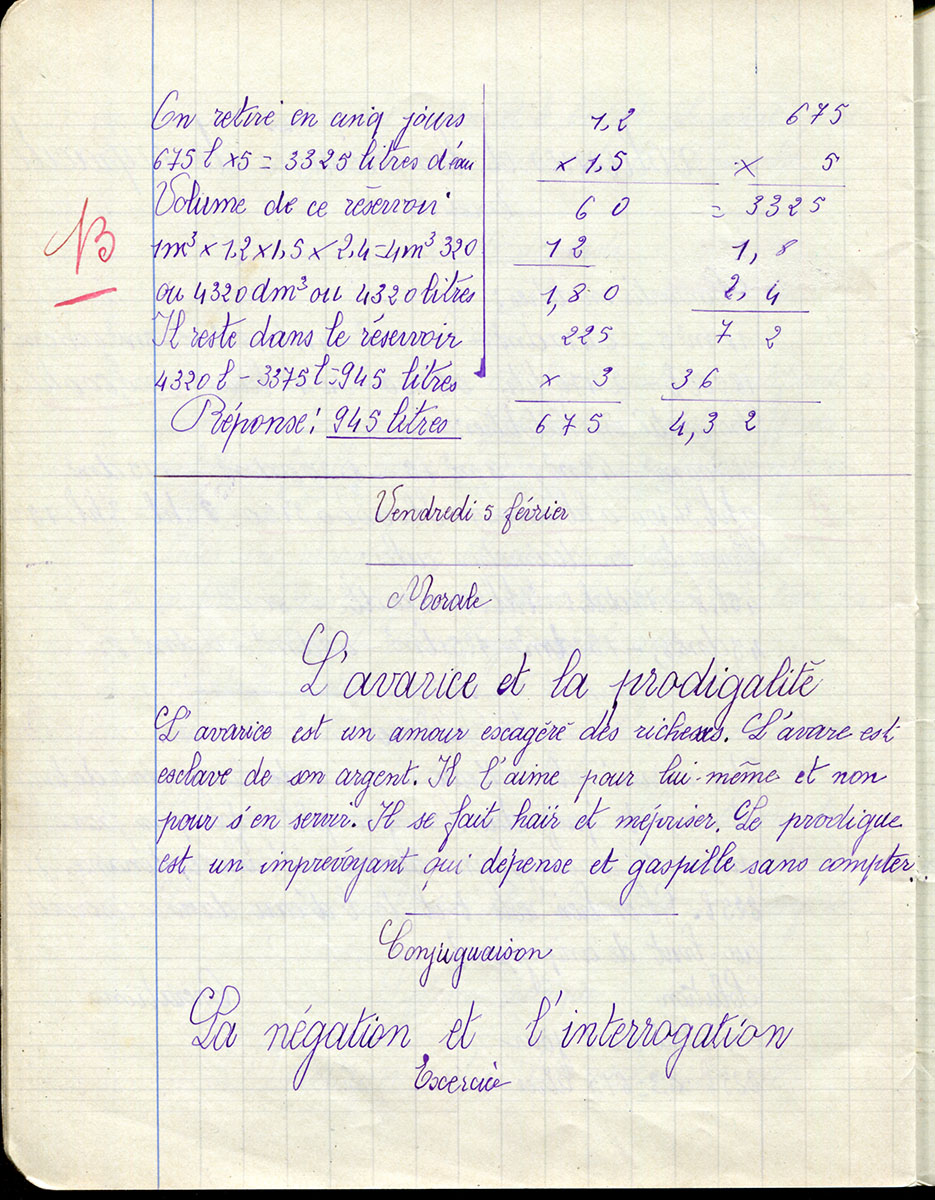 B
On retire en cinq jours
675 l × 5 = 3325 litres d'eau
Volume de ce réservoir
1m³ × 1,2 × 1,5 × 2,4 = 4m³ 320
ou 4320 dm³ ou 4320 litres
Il reste dans le réservoir
4320 l - 3375 l = 945 litres
Réponse: 945 litres
1,2
× 1,5
6 0
1 2
1,8 0
225
× 3
675
675
× 5
= 3325
1,8
2,4
7 2
3 6
4,3 2
Vendredi 5 février
Morale
L'avarice et la prodigalité
L'avarice est un amour escagéré des richesses. L'avare est
esclave de son argent. Il l'aime pour lui-même et non
pour s'en servir. Il se fait haïr et mépriser. Le prodigue
est un imprévoyant qui dépense et gaspille sans compter.
Conjuguaison
La négation et l'interrogation
Exercice